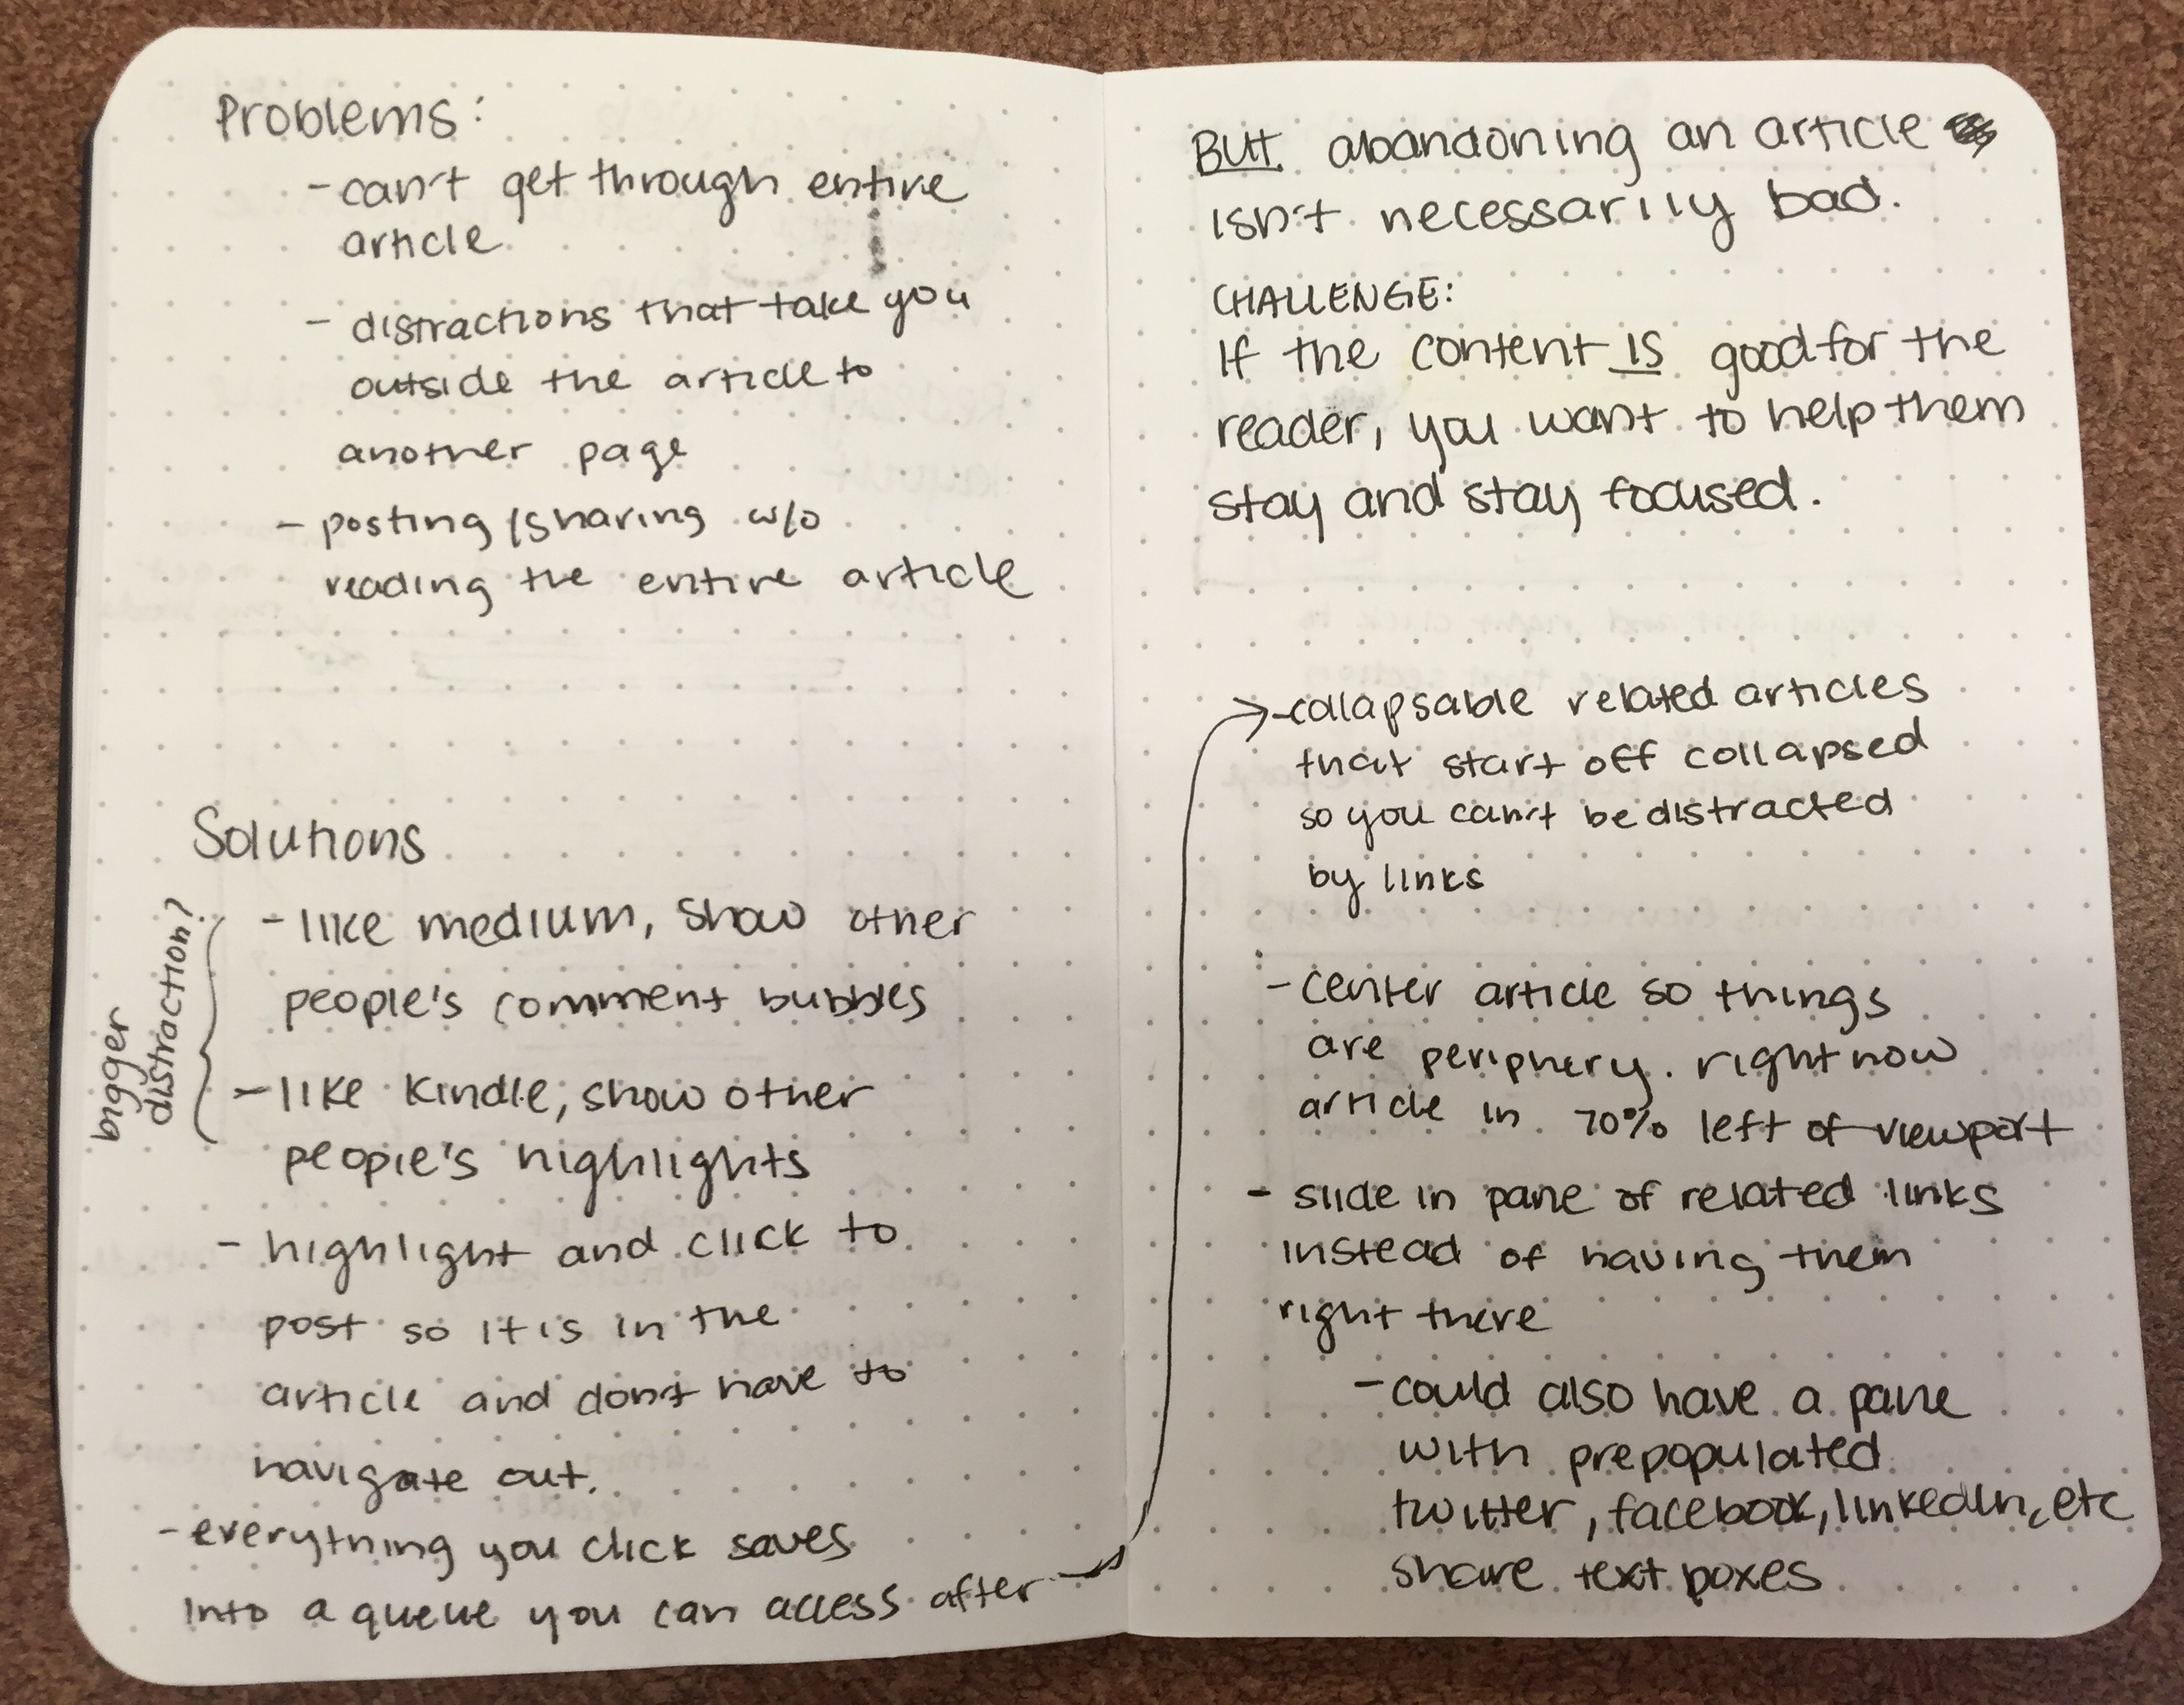 Problems:
- can't get through entire
article
- distractions that take you
outside the article to
another page
- posting/sharing w/o
reading the entire article
Solutions
bigger
distraction?
- like medium, show other
people's comment bubbles
- like Kindle, show other
people's highlights
- highlight and click to
post so it is in the
article and don't have to
navigate out.
- everything you click saves
into a queue you can access after
BUT abandoning an article
isn't necessarily bad.
CHALLENGE:
If the content IS good for the
reader, you want to help them
stay and stay focused.
- collapsable related articles
that start off collapsed
so you can't be distracted
by links
- center article so things
are periphery. right now
article in 70% left of viewport
- slide in pane of related links
instead of having them
right there
- could also have a pane
with prepopulated
twitter, facebook, linkedIn, etc
share text boxes